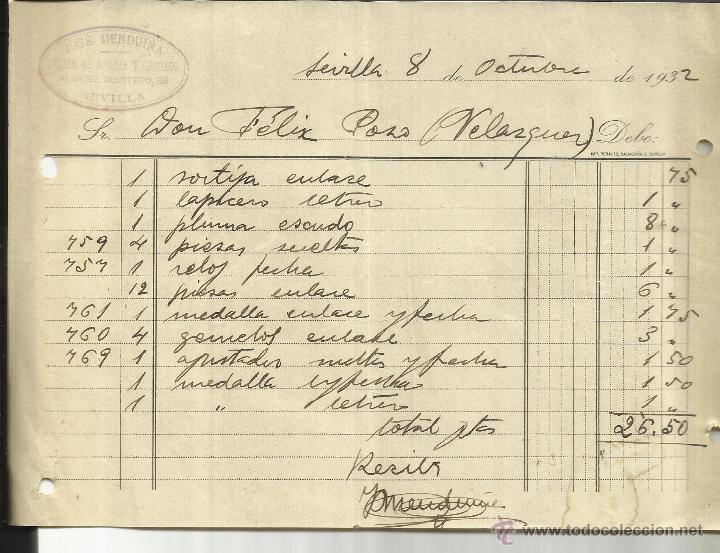 JOSÉ MENDUIÑA
TALLER DE JOYERIA Y GRABADO
QUINTERO, 28
SEVILLA
Sevilla 8 de Octubre de 1932
Sr. Don Félix Pozo (Velazquez) Debe:
1 sortija enlase 75
1 lapicero letrero 1 "
1 pluma escudo 8 "
759 4 piesas sueltas 1 "
757 1 reloj fecha 1 "
12 piesas enlase 6 "
761 1 medalla enlase y fecha 1 75
760 4 gemelos enlase 3 "
769 1 sueltas y fecha 1 50
1 medalla y fecha 1 50
1 " letrero 1 "
total ptas 26.50
Recibi
JMenduiña
www.todocoleccion.net